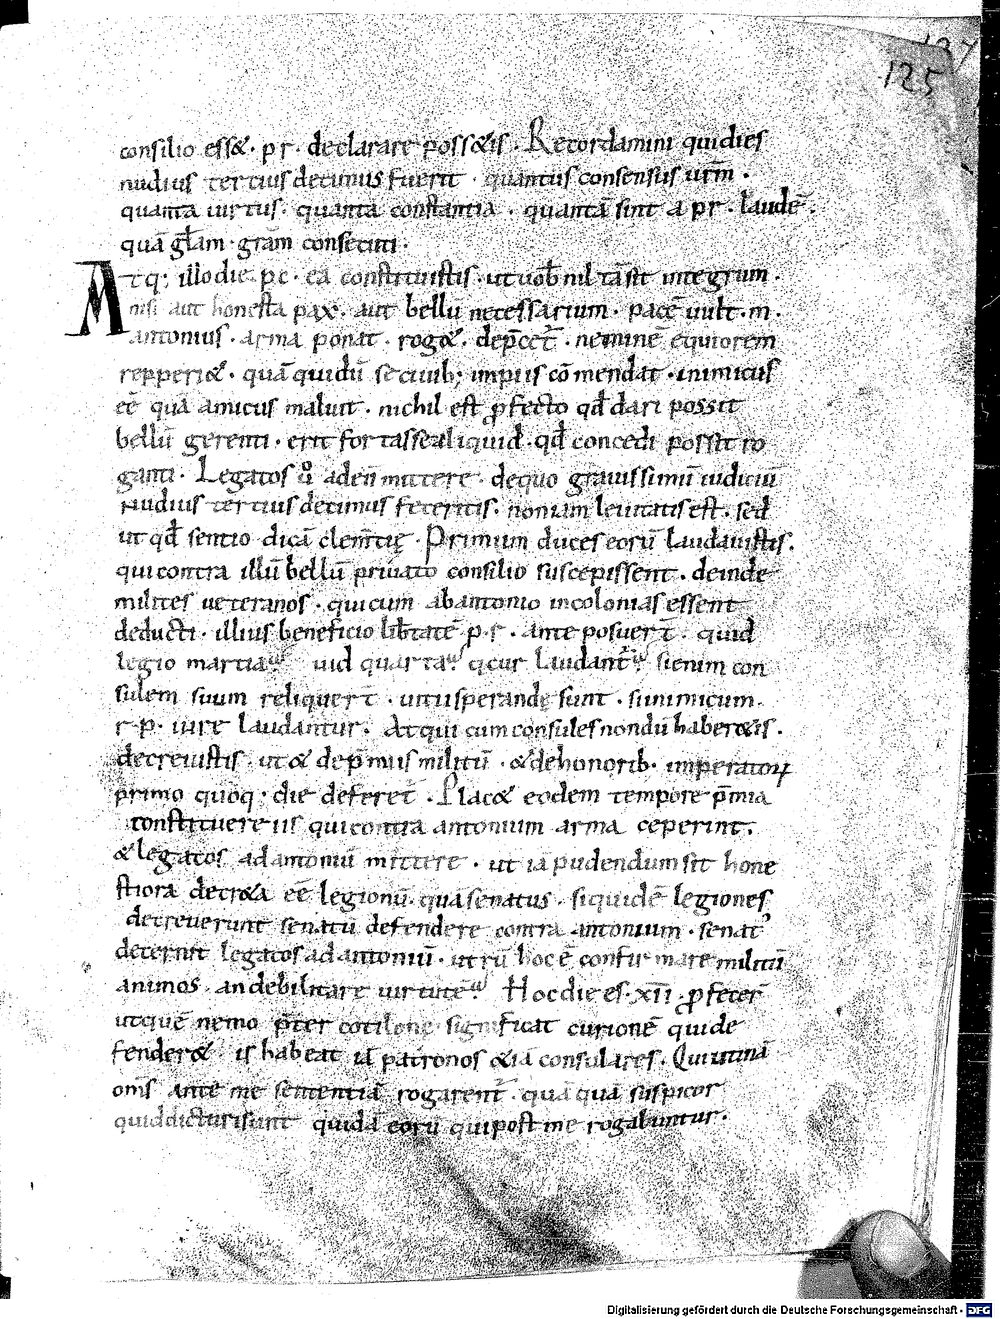 125
consilio esse&. p r. declarare poss&is. Recordamini quidies
nudius tertius decimus fuerit. quantus consensus urm̄.
quanta uirtus. quanta constantia. quantā sint a p r. laudē.
quā gl̄am. gr̄am consecuti.
Atq; illo die. p c. ea constituistis. ut uob̄ nil tā sit integrum.
nisi aut honesta pax. aut bellū necessarium. pacē uult. m.
antonius. arma ponat. rog&. dep̄cet̄. neminē equiorem
repperi&. quā quidū se ciuib; impiis cōmendat. inimicus
eē quā amicus maluit. nichil est ꝓfecto qd̄ dari possit
bellū gerenti. erit fortasse aliquid. qd̄ concedi possit ro
ganti. Legatos ů ad eū mittere. dequo grauissimū iudiciū
Nudius tertius decimus feceritis. non iam leuitatis est. sed
ut qd̄ sentio dicā clem̄tię. Primum duces eorū laudauistis.
qui contra illū bellū priuato consilio suscepissent. deinde
milites ueteranos. qui cum ab antonio in colonias essent
deducti. illius beneficio lib̄tatē p. r. anteposuer̄t. quid
legio martia? uid quarta? q cur laudant̄? si enim con
sulem suum reliquer̄t. uituperande sunt. si inimicum.
r. p. iure laudantur. Atqui cum consules nondū haber&is.
decreuistis. ut & de p̄miis militū. & de honorib. imperatoꝝ
primo quoq. die deferet̄. Plac& eodem tempore p̄mia
constituere iis qui contra antonium arma ceperint.
& legatos ad antoniū mittere. ut iā pudendum sit hone
stiora decr&a eē legionū. quā senatus. siquidē legiones
decreuerunt senatū defendere contra antonium. senat᾿
decernit legatos ad antoniū. utrū hoc ē confirmare militū
animos. an debilitare uirtutē? Hoc dies. xii. ꝓfecer̄
ut quē nemo p̄ter cotilone significat curionē qui de
fender&. is habeat iā patronos & iā consulares. Qui utinā
om̄s ante me sententiā rogarent̄. quā quā suspicor
quid dicturi sint quidā eorū qui post me rogabuntur.
Digitalisierung gefördert durch die Deutsche Forschungsgemeinschaft - DFG